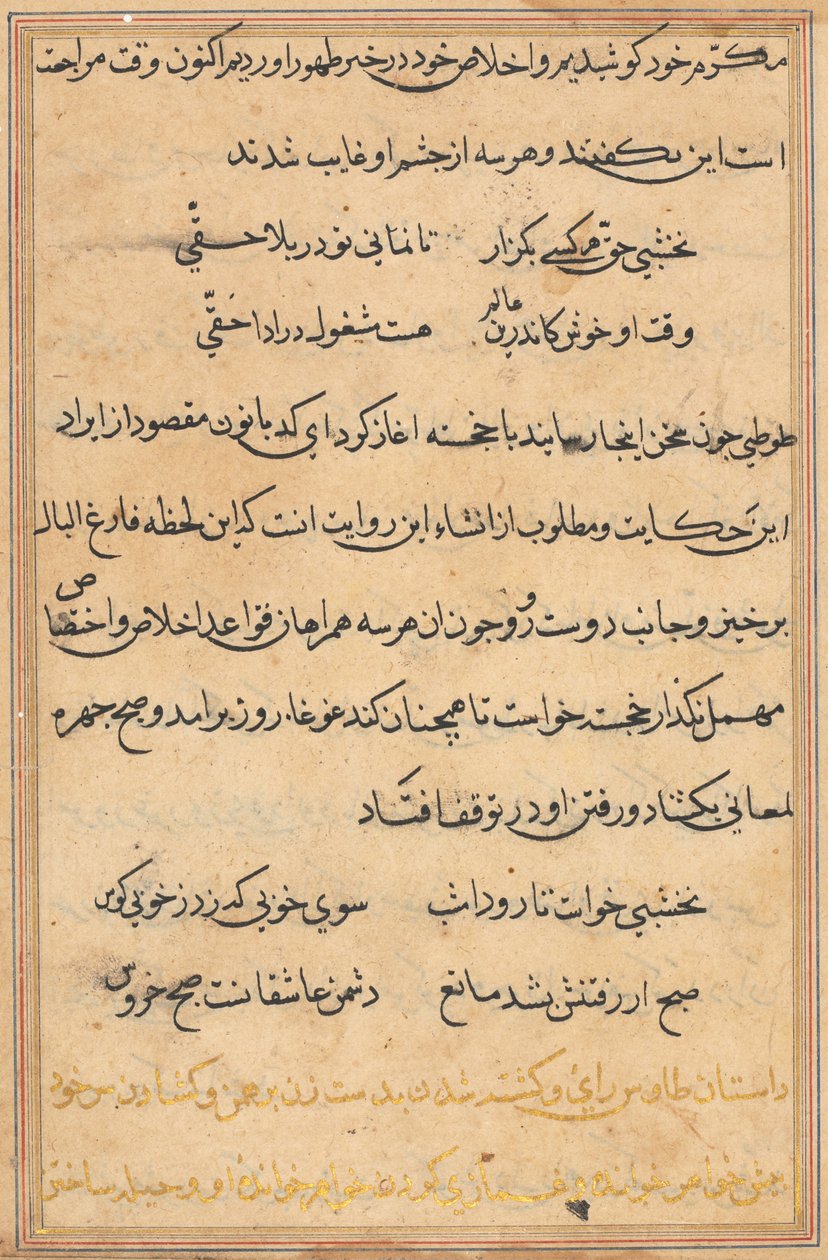 مکرّم خود کوشیدیم و اخلاص خود در خیر ظهور اوردیم اکنون وقت مراجعت
است این بکفتند و هر سه از جشم او غایب شدند
نخشبي حقّ هر کسے بکزار تا نمانی تو در بلا حقّي
وقت او خوش کاندرین عالم هست مشغول در ادا حَقّي
طوطي جون سخن اینجا رسانید با خجسته اغاز کرد اي کدبانون مقصود از ایراد
این حکایت و مطلوب از انشاء این روایت انست که این لحظه فارغ البال
برخیز و جانب دوست رو و جون ان هر سه همراهان قواعد اخلاص و اختصاص
مهمل نکذار خجسته خواست تا همچنان کند غوغا روز برامد و صبح جهره
لمعاني بکشاد و رفتن او در توقف افتاد
نخشبي خواست تا رود امشب سوي خوبي که زد ز خوبي کوس
صبح از رفتنش بشد مانع دشمن عاشقانست صبح خروس
داستان طاوس راي و کشته شدن بدست زن برهمن و کشادن سر خود
پیش خواهر خوانده و غمازي کردن خواهر خوانده او و حیله ساختن